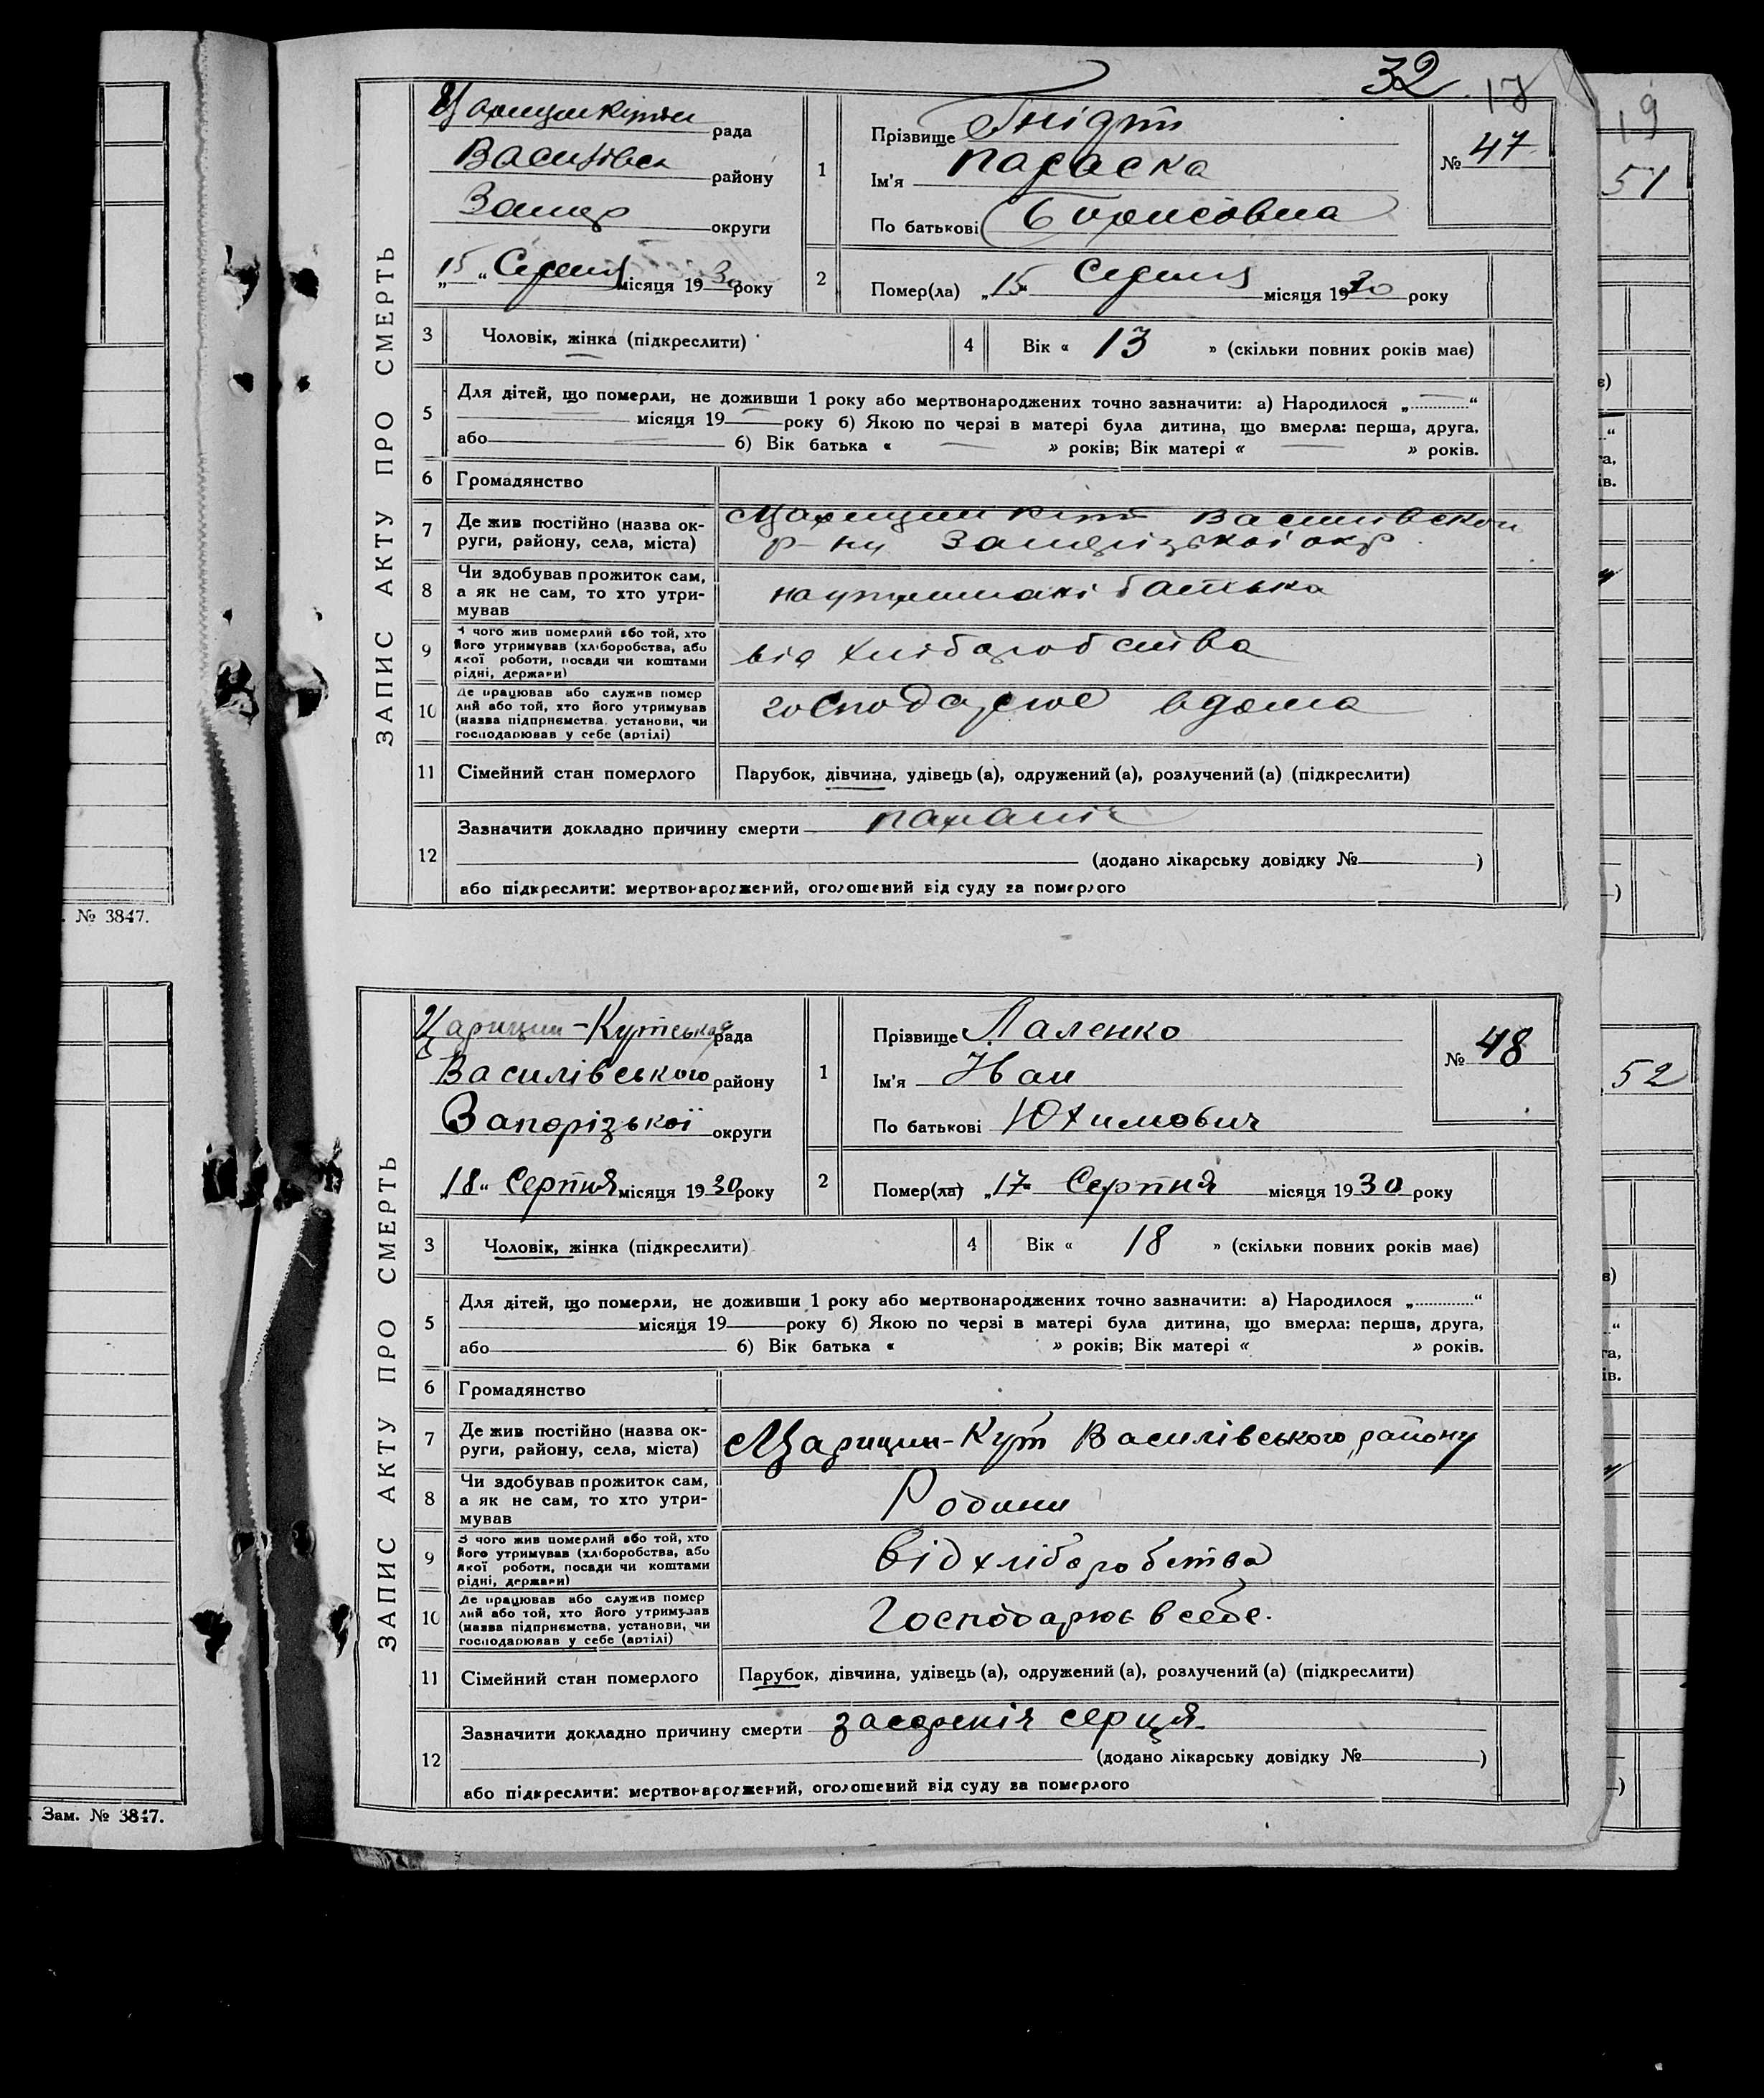 32
17
19
51
52
ЗАПИС АКТУ ПРО СМЕРТЬ
рада
району
Запор
округи
„15“ Серпня місяця 1930 року
1
Прізвище
Ім'я Параска
По батькові Борисовна
№ 47
2
Помер(ла) „15“ Серпня місяця 1930 року
3
Чоловік, жінка (підкреслити)
4
Вік « 13 » (скільки повних років має)
5
Для дітей, що померли, не доживши 1 року або мертвонароджених точно зазначити: а) Народилося „..........“
місяця 19 року б) Якою по черзі в матері була дитина, що вмерла: перша, друга,
або б) Вік батька « » років; Вік матері « » років.
6
Громадянство
7
Де жив постійно (назва ок-
руги, району, села, міста)
Царицин Кут
р-ну Запорізької окр.
8
Чи здобував прожиток сам,
а як не сам, то хто утри-
мував
батька
9
З чого жив померлий або той, хто
його утримував (хліборобства, або
якої роботи, посади чи коштами
рідні, держави)
від хліборобства
10
Де працював або служив помер
лий або той, хто його утримував
(назва підприємства, установи, чи
господарював у себе (артілі)
господарює вдома
11
Сімейний стан померлого
Парубок, дівчина, удівець (а), одружений (а), розлучений (а) (підкреслити)
12
Зазначити докладно причину смерти
(додано лікарську довідку № )
або підкреслити: мертвонароджений, оголошений від суду за померлого
. № 3847.
ЗАПИС АКТУ ПРО СМЕРТЬ
Царицин-Кутська рада
Василівського району
Запорізької округи
„18“ Серпня місяця 1930 року
1
Прізвище Паленко
Ім'я Іван
По батькові Юхимович
№ 48
2
Помер(ла) „17“ Серпня місяця 1930 року
3
Чоловік, жінка (підкреслити)
4
Вік « 18 » (скільки повних років має)
5
Для дітей, що померли, не доживши 1 року або мертвонароджених точно зазначити: а) Народилося „..........“
місяця 19 року б) Якою по черзі в матері була дитина, що вмерла: перша, друга,
або б) Вік батька « » років; Вік матері « » років.
6
Громадянство
7
Де жив постійно (назва ок-
руги, району, села, міста)
Царицин-Кут Василівського району
8
Чи здобував прожиток сам,
а як не сам, то хто утри-
мував
Родини
9
З чого жив померлий або той, хто
його утримував (хліборобства, або
якої роботи, посади чи коштами
рідні, держави)
від хліборобства
10
Де працював або служив помер
лий або той, хто його утримував
(назва підприємства, установи, чи
господарював у себе (артілі)
Господарює в себе.
11
Сімейний стан померлого
Парубок, дівчина, удівець (а), одружений (а), розлучений (а) (підкреслити)
12
Зазначити докладно причину смерти серця
(додано лікарську довідку № )
або підкреслити: мертвонароджений, оголошений від суду за померлого
Зам. № 3847.